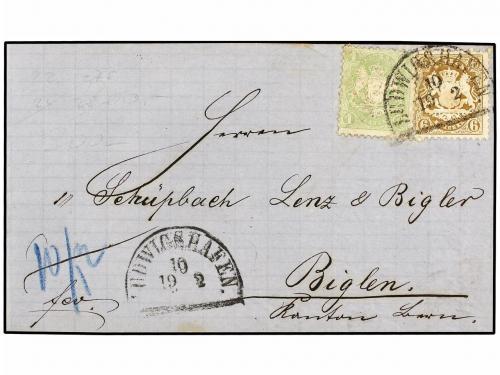 LUDWIGSHAFEN
10 2
1
6
Herren
" Schüpbach Lenz & Bigler
10/2
LUDWIGSHAFEN.
10
19 2
Biglen.
fco.
Kanton Bern.